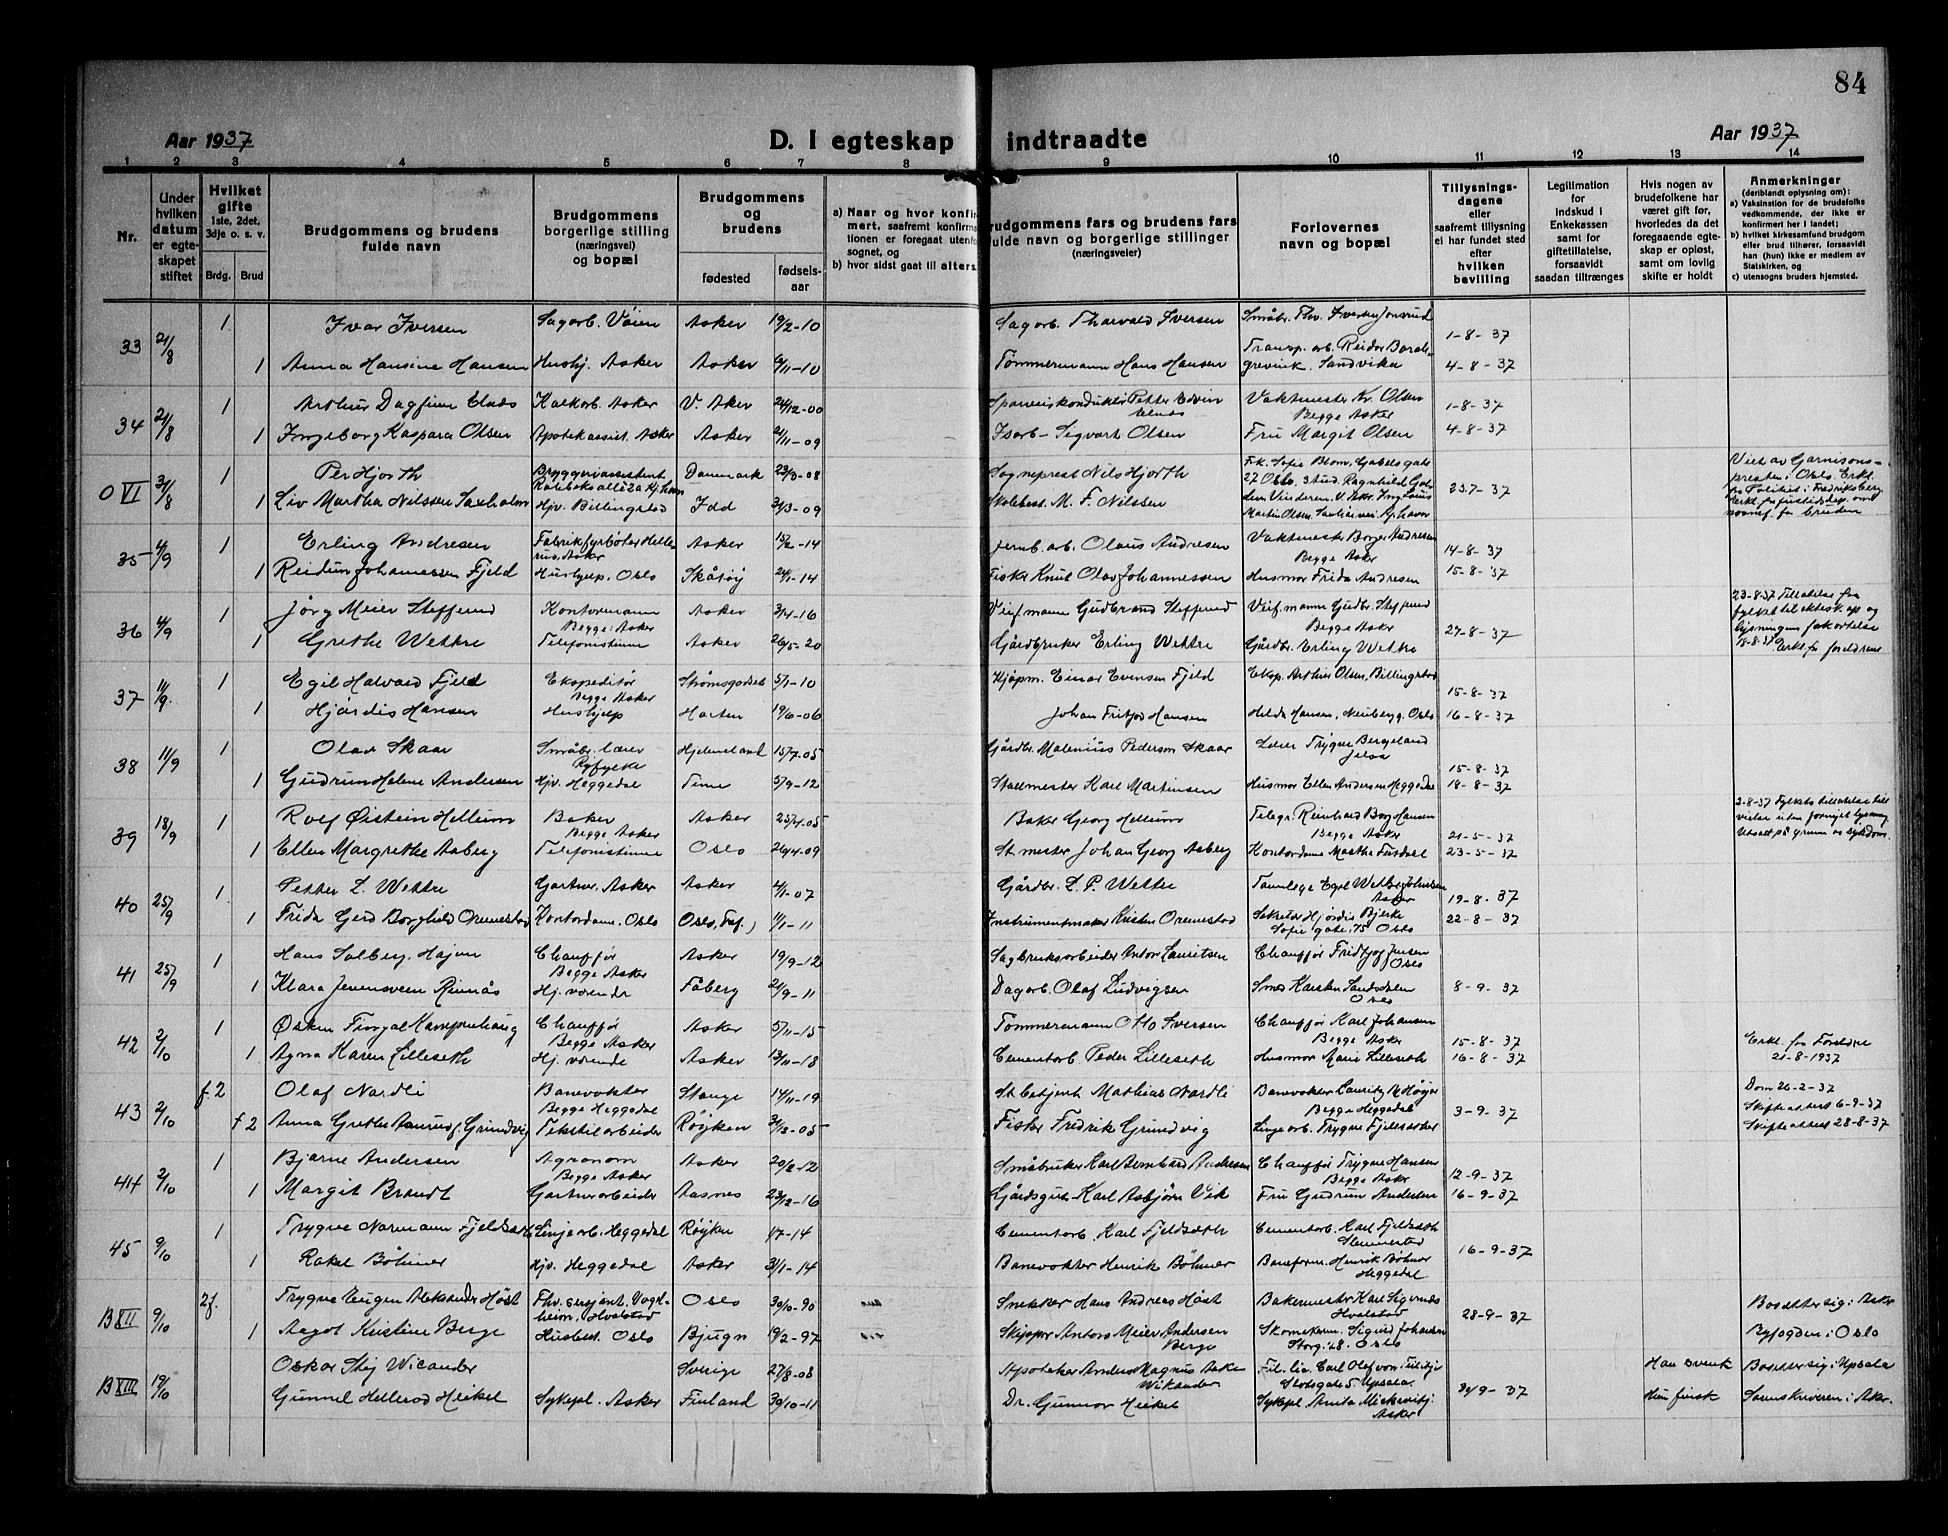 84
Aar 1937
D. I egteskap indtraadte
Aar 1937
1 2 3 4 5 6 7 8 9 10 11 12 13 14
Nr.
Under hvilken datum er egteskapet stiftet
Hvilket gifte
1ste, 2det, 3dje o. s. v.
Brdg. Brud
Brudgommens og brudens fulde navn
Brudgommens borgerlige stilling (næringsvei) og bopæl
Brudgommens og brudens
fødested fødselsaar
a) Naar og hvor konfirmert, saafremt konfirmationen er foregaat utenfor sognet, og
b) hvor sidst gaat til alters.
Brudgommens fars og brudens fars fulde navn og borgerlige stillinger (næringsveier)
Forlovernes navn og bopæl
Tillysningsdagene eller saafremt tillysning ei har fundet sted efter hvilken bevilling
Legitimation for indskud i Enkekassen samt for giftetillatelse, forsaavidt saadan tiltrænges
Hvis nogen av brudefolkene har været gift før, hvorledes da det foregaaende egteskap er opløst, samt om lovlig skifte er holdt
Anmerkninger
(deriblandt oplysning om):
a) Vaksination for de brudefolks vedkommende, der ikke er konfirmert her i landet;
b) hvilket kirkesamfund brudgom eller brud tilhører, forsaavidt han (hun) ikke er medlem av Statskirken, og
c) utensogns bruders hjemsted.
33 21/8 1 Ivar Iversen Sagarb. Vøien Asker 19/2-10 Sagarb. Tharvald Iversen Småbr. Thv. Iversen 1-8-37
1 Anna Hansine Hansen Hushj. Asker Asker 6/11-10 Tømmermann Hans Hansen Transp. arb. Reidar Sandvika 4-8-37
34 21/8 1 Arthur Dagfinn Elnæs Kalkarb. Asker V. Aker 24/12-00 Petter Edvin Elnæs Vaktmester Kr. Olsen 1-8-37
Begge Asker
1 Ingeborg Kaspara Olsen Apotekassist. Asker Asker 21/11-09 Isarb. Sigvart Olsen Fru Margit Olsen 4-8-37
O VI 31/8 1 Per Hjorth Bryggeriassistent Danmark 23/3-08 Sogneprest Nils Hjorth Frk. Sofie Blom, Gabelsgate 27 Oslo. 23.7-37 Viet av Garnisonspresten i Oslo.
1 Liv Martha Nilssen Saxholm Hjv. Billingstad Idd 31/3-09 Skolebest. M. F. Nilssen
35 4/9 1 Erling Andresen Fabrikfyrbøter Asker Asker 15/2-14 Jernb. arb. Olaus Andresen Vaktmester Borger Andresen 14-8-37
Begge Asker
1 Reidun Johannessen Fjeld Hushjelp. Oslo Skåtøy 24/1-14 Fisker Knut Olav Johannessen Husmor Frida Andresen 15-8-37
36 4/9 1 Jørg Meier Steffensrud Kontormann Asker 3/4-16 Veif.mann Gudbrand Veif.mann Gudbr. 23-8-37 Tillatelse fra fylket
Begge Asker Begge Asker
1 Grethe Wettre Telefonistinne Asker 26/5-20 Gårdbruker Erling Wettre Gårdbr. Erling Wettre 27-8-37 18-8-37 Erkl. fr. foreldrene
37 11/9 1 Egil Halvard Fjeld Ekspeditør Strømsgodset 5/1-10 Kjøpm. Einar Evensen Fjeld Eksp. Arthur Olsen, Billingstad 15-8-37
Begge Asker
1 Hjørdis Hansen Hushjelp Horten 19/6-06 Johan Fritjof Hansen Hilda Hansen, Neuberg g. Oslo 16-8-37
38 11/9 1 Olav Skaar Småbr. lærer Ryfylke Hjelmeland 15/7-05 Gårdbr. Malenius Pederson Skaar Lærer Trygve Bergeland Jelsa 15-8-37
1 Gudrun Helene Andersen Hjv. Heggedal Time 5/9-12 Stallmester Karl Martinsen Husmor Ellen Andersen Heggedal 18-8-37
39 18/9 1 Rolf Øistein Hellum Baker Asker 25/4-05 Baker Georg Hellum Telegr. Reinhard Berg Hansen 21-5-37 2-8-37 Fylkets tillatelse til vielse uten fornyet lysning. Utsatt på grunn av sykdom.
Begge Asker Begge Asker
1 Ellen Margrethe Aaberg Telefonistinne Oslo 26/4-09 St.mester Johan Georg Aaberg Kontordame Martha 23-5-37
40 25/9 1 Petter L. Wettre Gartner. Asker Asker 4/1-07 Gårdbr. L. P. Wettre Tannlege Egil Wettre Johnsen Asker 19-8-37
1 Frida Gerd Borghild Orrmestad Kontordame. Oslo Oslo, 11/1-11 Instrumentmaker Kristen Orrmestad Sekretær Hjørdis Bjerke Sofie gate 75 Oslo 22-8-37
41 25/9 1 Hans Solberg Højen Chauffør Asker 19/9-12 Sagbruksarbeider Anton Lauritsen Chauffør Fridtjof Jensen Oslo
Begge Asker
1 Klara Jevensveen Rinnås Hj. værende Fåberg 21/9-11 Dagarb. Olaf Ludvigsen Smed Karsten Sandsdalen Oslo 8-9-37
42 2/10 1 Øsken Fingal Kampenhaug Chauffør Asker 5/11-15 Tømmermann Otto Iversen Chauffør Karl Johansen 15-8-37 Erkl. fra Foreldre 21-8-1937
Begge Asker Begge Asker
1 Agna Karen Lilleseth Hj. værende Asker 13/11-18 Cementarb. Peder Lilleseth Husmor Marie Lilleseth 16-8-37
43 2/10 f. 2 Olaf Nordli Banevokter Stange 14/11-19 St. betjent Mathias Nordli Banevokter Lauritz M. Høyer Dom 26-2-37
Begge Heggedal Begge Heggedal 3-9-37 Skifteattest 6-9-37
f 2 Anna Grethe Aaserud f. Grundvig Tekstilarbeider Røyken 31/3-05 Fisker Fredrik Grundvig Linjearb. Trygve Fjeldsæther Skifteattest 28-8-37
44 2/10 1 Bjarne Andersen Agronom Asker 20/2-12 Småbruker Karl Bernhard Andresen Chauffør Trygve Hansen 12-9-37
Begge Asker Begge Asker
1 Margit Brandt Gartnerarbeider Aasnes 23/12-16 Gårdsgut Karl Asbjørn Vik Fru Gudrun Andersen 16-9-37
45 9/10 1 Trygve Normann Fjeldsæth Linjearb. Heggedal Røyken 1/7-14 Cementarb. Karl Fjeldsæth Cementarb. Karl Fjeldsæth Slemmestad
1 Rakel Böhmer Hjv. Heggedal Asker 31/1-14 Banevokter Henrik Böhmer Baneform. Henrik Böhmer Heggedal 16-9-37
B XII 9/10 2f. Trygve Eugen Aleksander Høst Fhv. sersjant. Hvalstad Oslo 30/10-90 Snekker Hans Andreas Høst Bakermester Karl Sigernes Hvalstad 28-9-37 Bosetter sig i Asker
1 Aagot Kristine Berge Husbest. Oslo Bjugn 19/2-97 Skipper Anton Meier Andersen Berge Sigurd Johansen Storg. 28. Oslo Byfogden i Oslo
B XIII 19/10 Oskar Stig Wicander Sverige 27/8-08 Apoteker Anders Magnus Wikander Carl Olof Slotsgate 5 Upsala Han svensk Bosetter sig i Upsala
Gunnel Hellerod Heikel Sykepl. Asker Finland 30/10-11 Dr. Gunnar Heikel Sykepl. Anita Asker 30/9-37 Hun finsk Sorenskriveren i Asker.